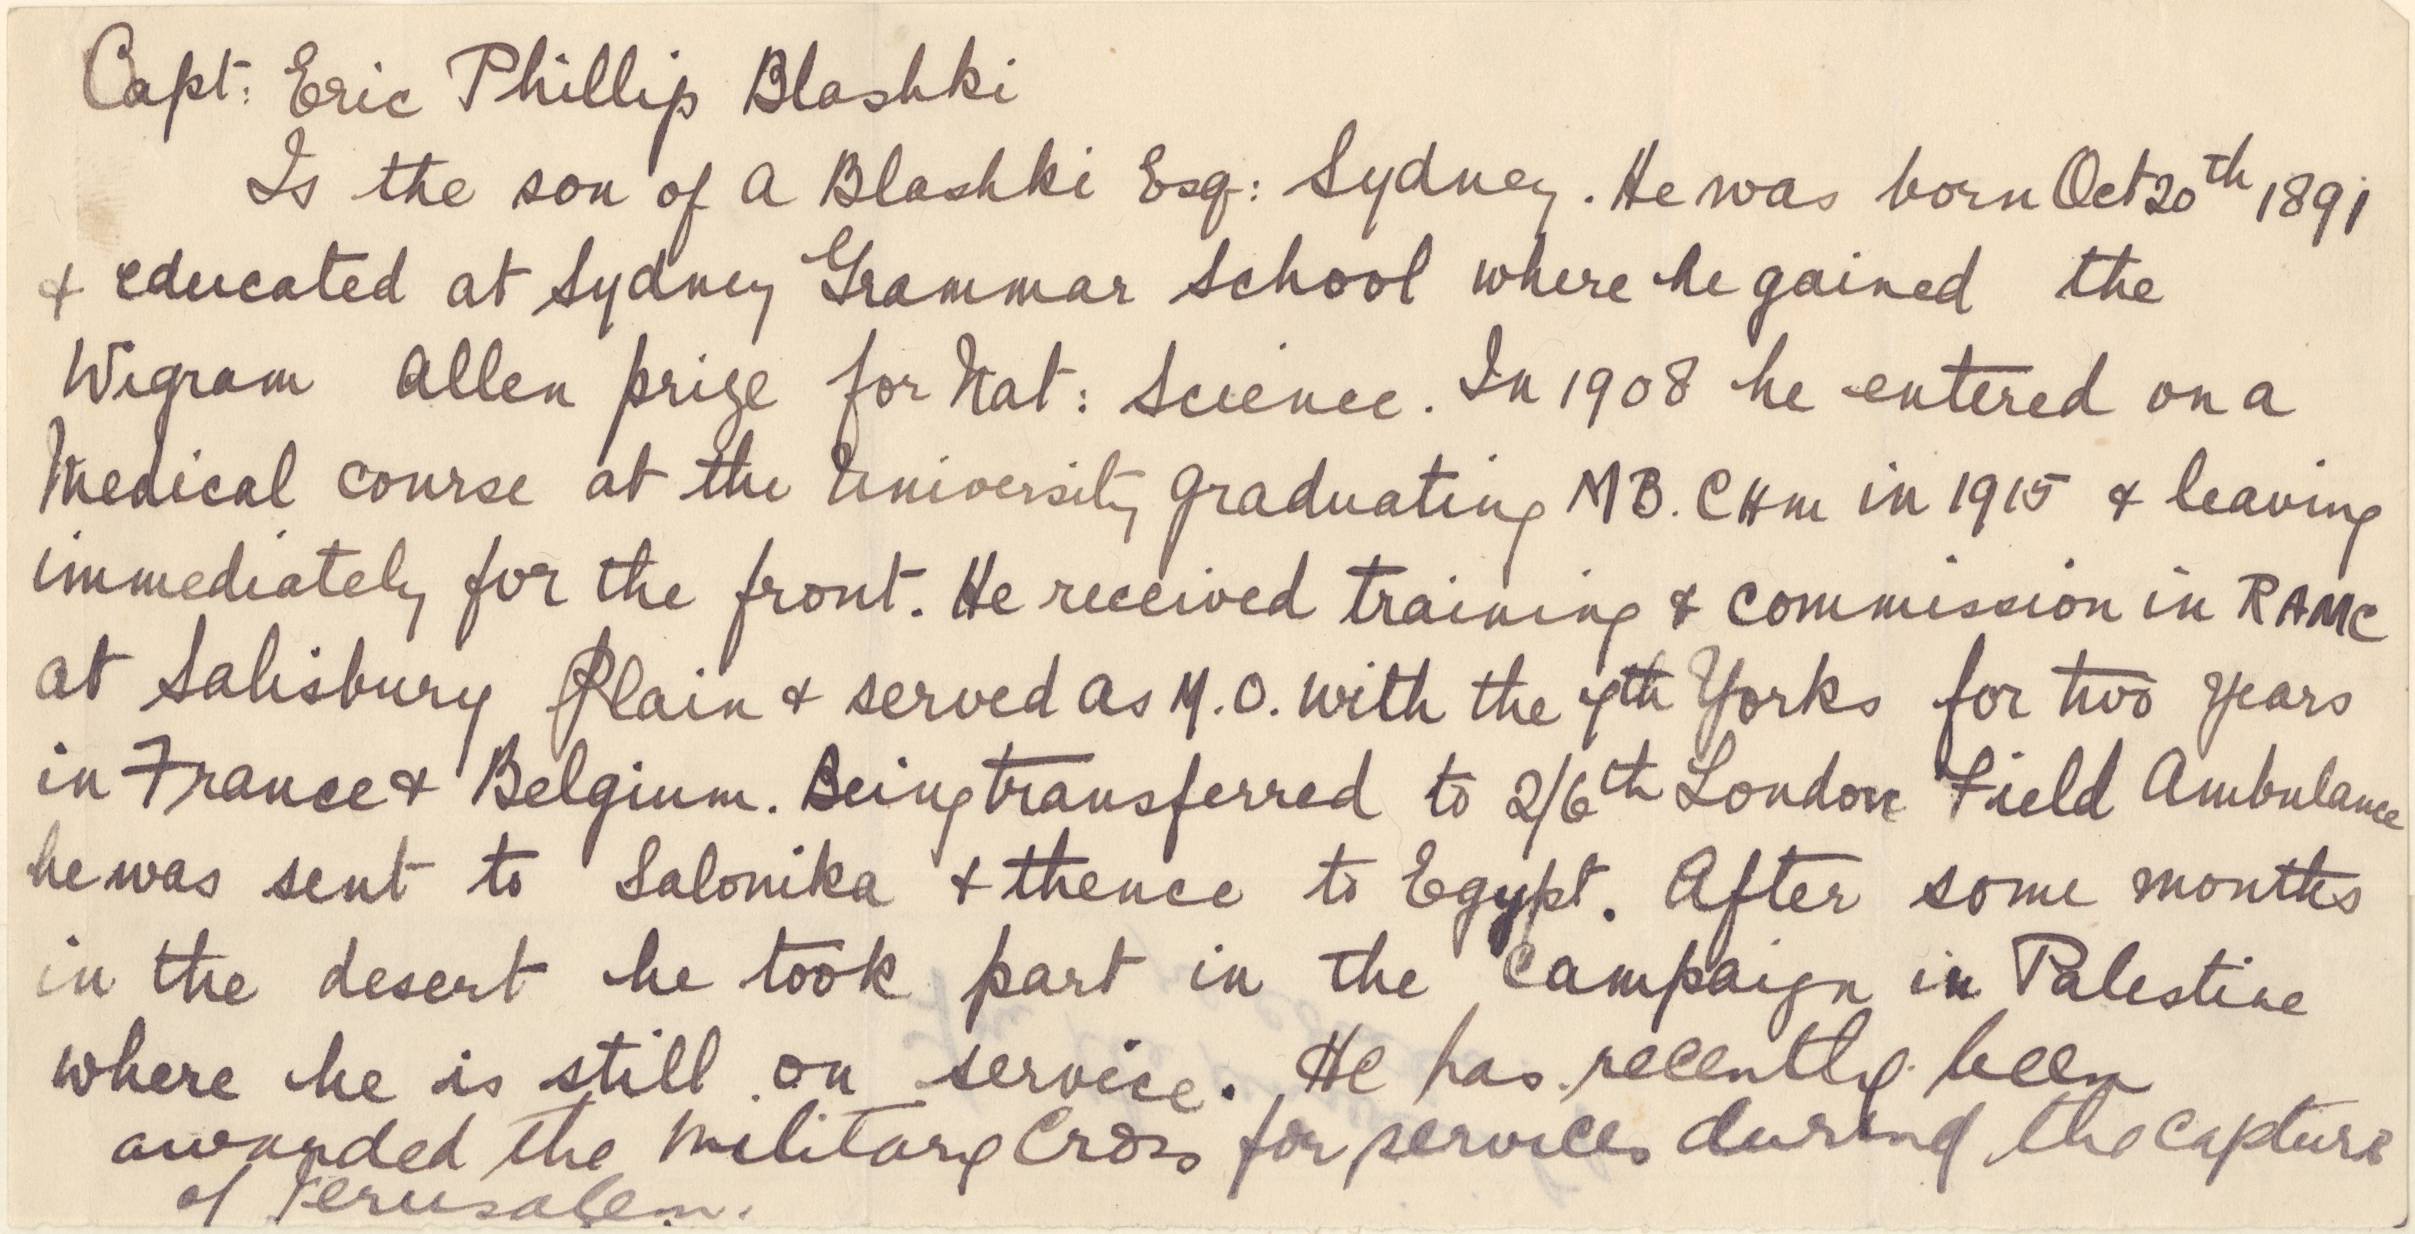 Capt: Eric Phillip Blashki
Is the son of A Blashki Esq: Sydney. He was born Oct 20th 1891
& educated at Sydney Grammar School where he gained the
Wigram Allen prize for Nat: Science. In 1908 he entered on a
Medical course at the University graduating MB. CHm in 1915 & leaving
immediately for the front. He received training & commission in RAMC
at Salisbury Plain & served as M.O. with the 7th Yorks for two years
in France & Belgium. Being transferred to 2/6th London Field Ambulance
he was sent to Salonika & thence to Egypt. After some months
in the desert he took part in the campaign in Palestine
where he is still on service. He has recently been
awarded the Military Cross for services during the capture
of Jerusalem.